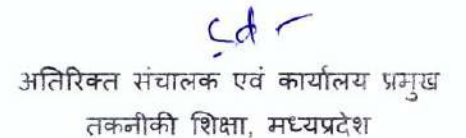 अतिरिक्त संचालक एवं कार्यालय प्रमुख
तकनीकी शिक्षा, मध्यप्रदेश